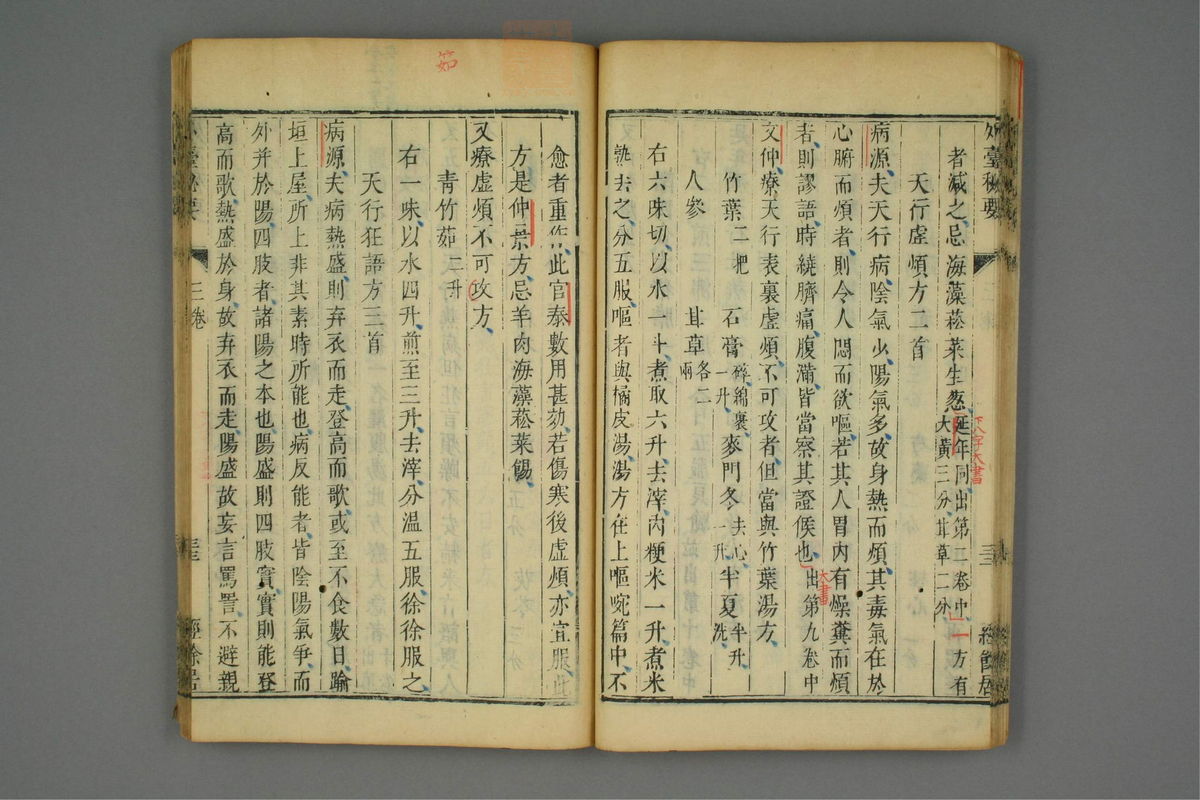 外臺秘要
者減之忌海藻菘菜生葱延年同出第二卷中一方有大黃三分甘草二分
天行虛煩方二首
病源夫天行病陰氣少陽氣多故身熱而煩其毒氣在於
心腑而煩者則令人悶而欲嘔若其人胃內有燥糞而煩
者則謬語時繞臍痛腹滿皆當察其證候也出第九卷中
文仲療天行表裏虛煩不可攻者但當與竹葉湯方
竹葉二把 石膏碎綿裹一升 麥門冬去心一升 半夏半升洗
人參 甘草各二兩
右六味切以水一斗煮取六升去滓內粳米一升煮米
熟去之分五服嘔者與橘皮湯湯方在上嘔啘篇中不
愈者重作此官泰數用甚効若傷寒後虛煩亦宜服此
方是仲景方忌羊肉海藻菘菜餳
又療虛煩不可攻方
青竹茹二升
右一味以水四升煎至三升去滓分溫五服徐徐服之
天行狂語方三首
病源夫病熱盛則弃衣而走登高而歌或至不食數日踰
垣上屋所上非其素時所能也病反能者皆陰陽氣爭而
外并於陽四肢者諸陽之本也陽盛則四肢實實則能登
高而歌熱盛於身故弃衣而走陽盛故妄言罵詈不避親
三卷
經餘居
茹
大書